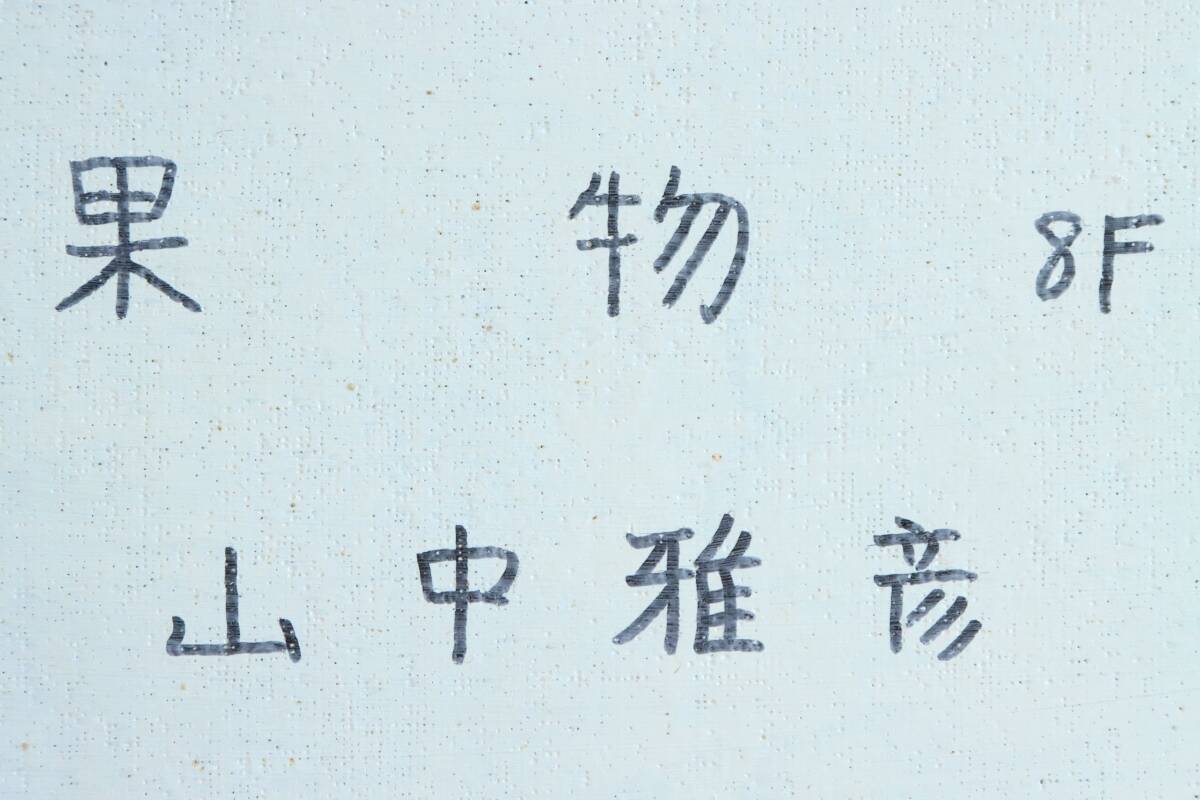 果物 8F
山中雅彦